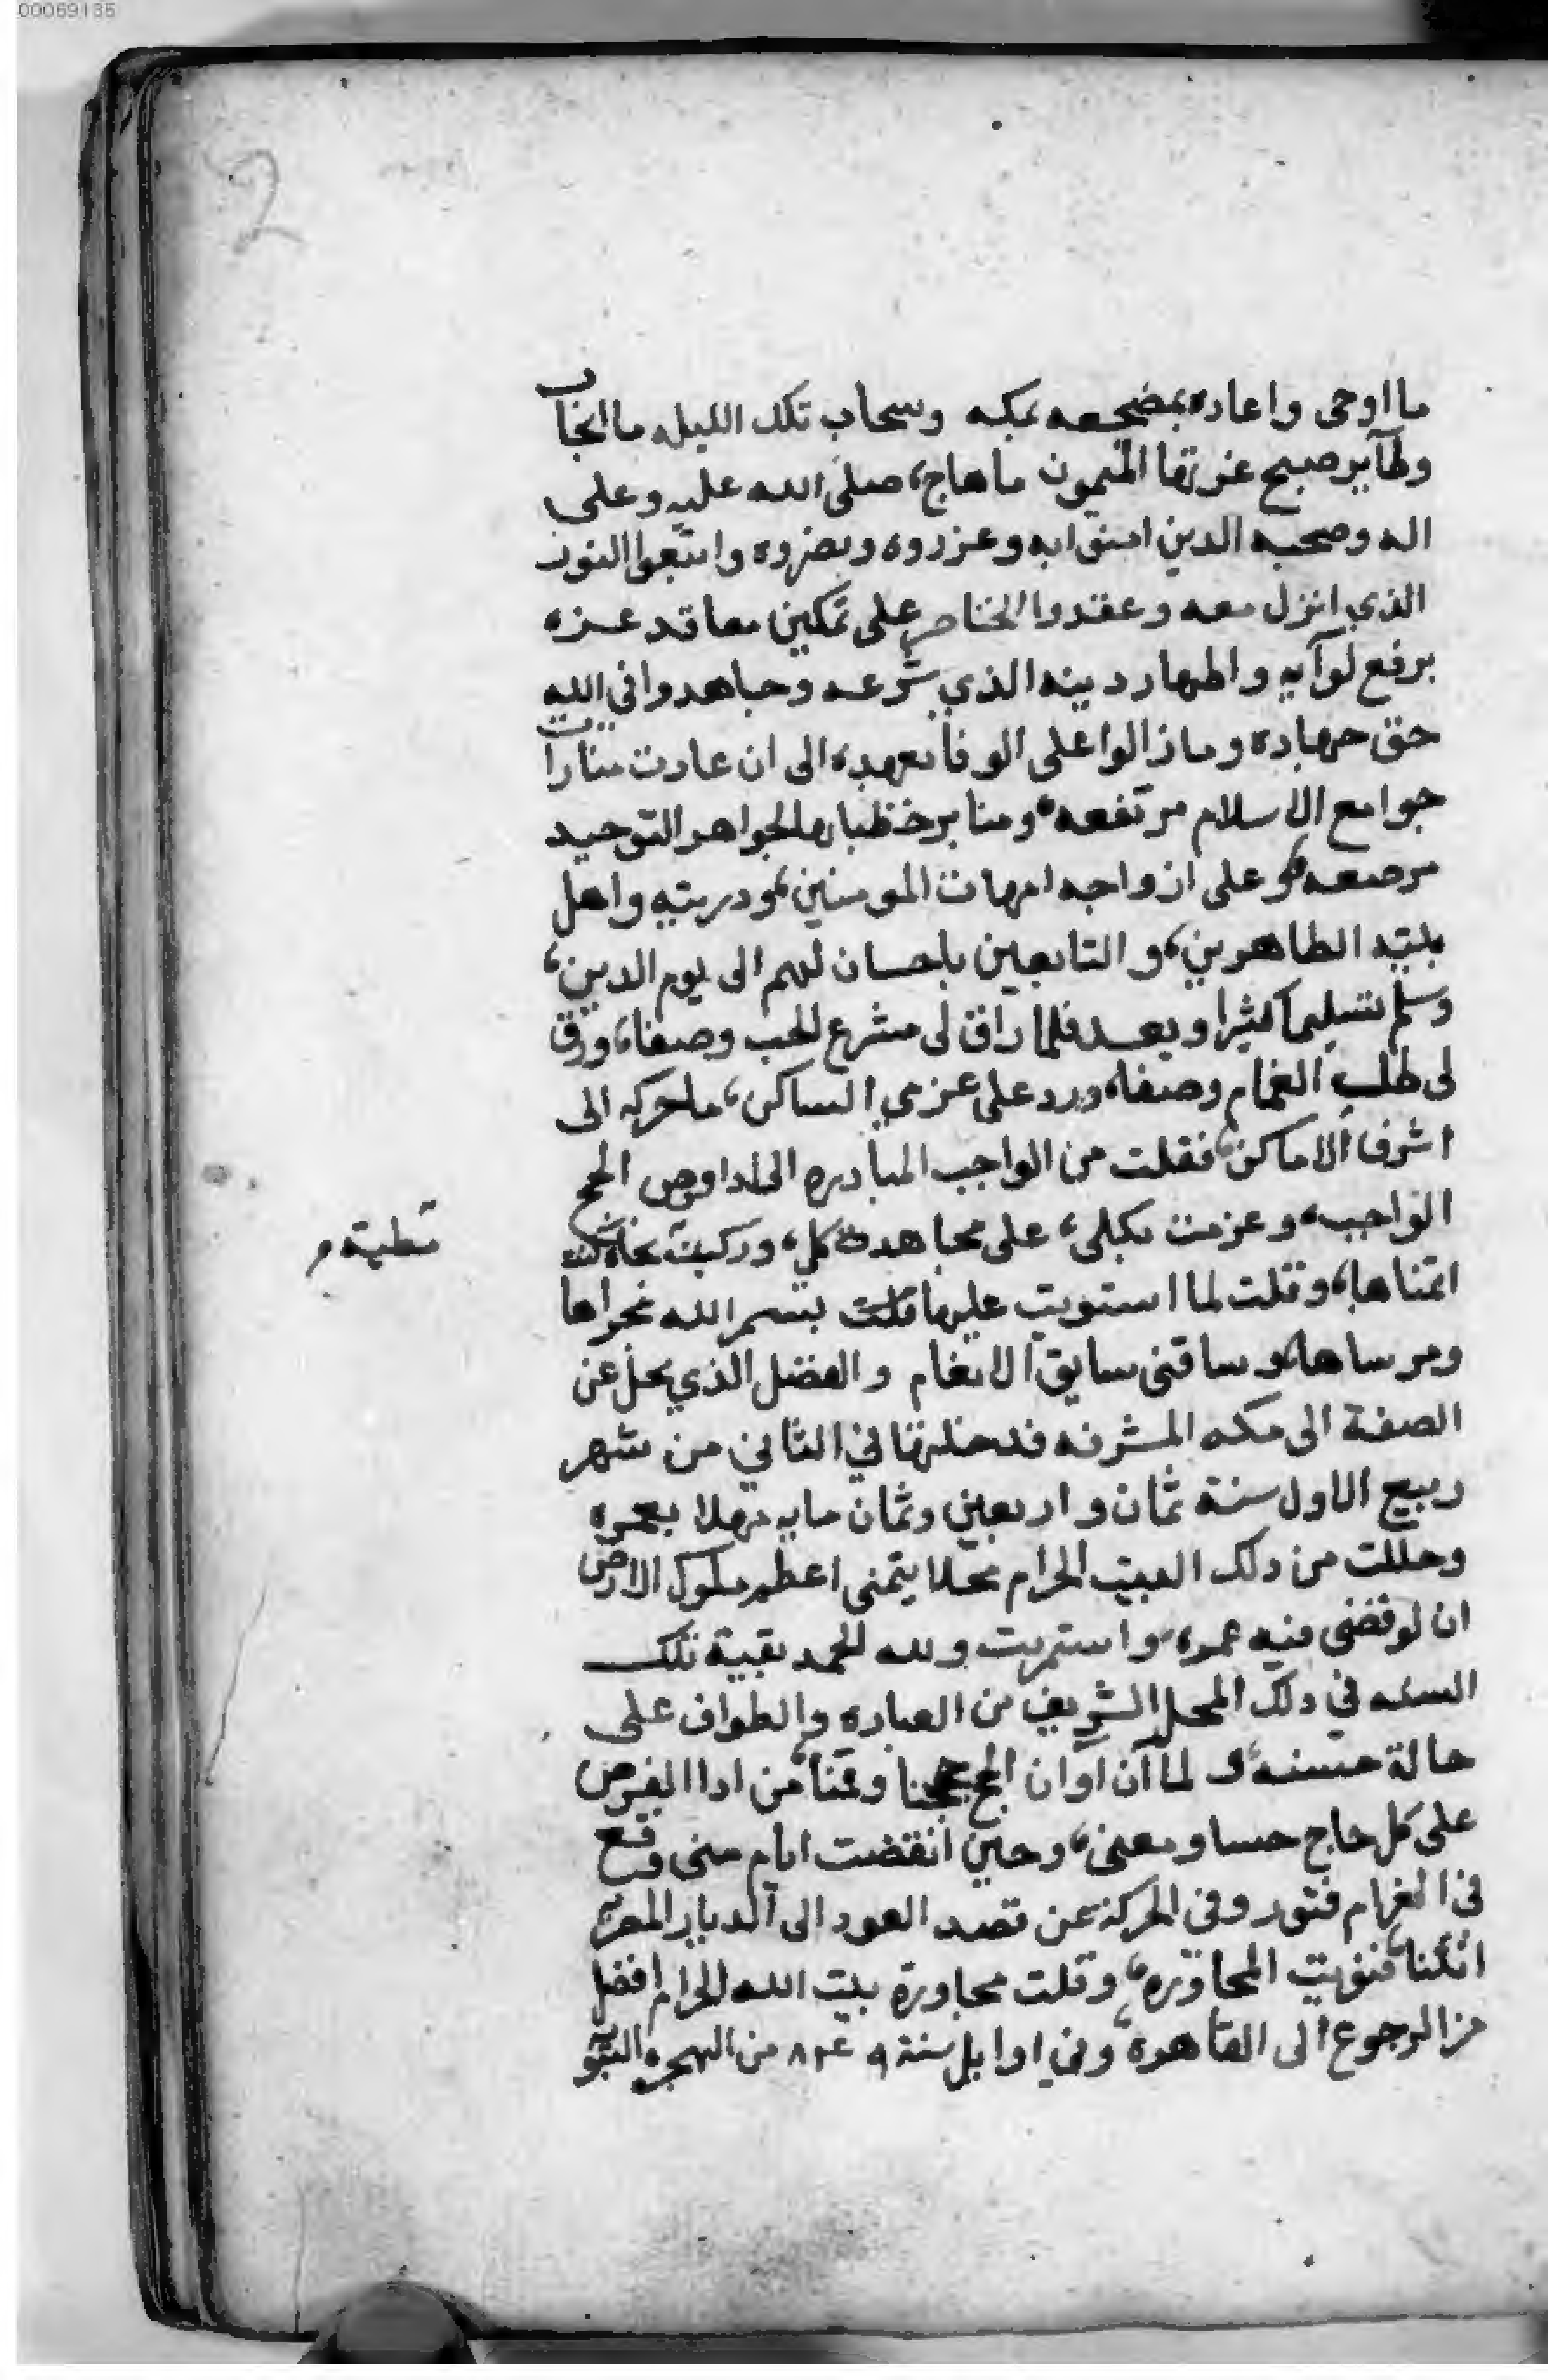 00069135
2
ما اوحى واعاده بمضجعه بمكه وسحاب تلك الليله ما انجاب
وطآير صبح غرتها الميمون ما هاج، صلى الله عليه وعلى
اله وصحبه الدين امنوا به وعزروه ونصروه واتبعوا النور
الذي انزل معه وعقدوا الخناصر على تمكين معاقد عزه
برفع لوآيه واظهار دينه الذي شرعه وجاهدوا في الله
حق جهاده وما زالوا على الوفا بعهده الى ان عادت منارات
جوامع الاسلام مرتفعه، ومنابر خطبايها بجواهر التوحيد
مرصعه، وعلى ازواجه امهات المومنين، ودريته واهل
بيته الطاهرين، والتابعين باحسان لهم الى يوم الدين،
وسلم تسليما كثيرا وبعد فلما راق لى مشرع الحب وصفا، ورق
لى طلب الغمام وصفا، ورد على عزمي الساكن، ما حركه الى
اشرف الاماكن، فقلت من الواجب المبادره الى ادا فرض الحج
الواجب، وعزمت بكلى، على مجاهدة كل، وركبت كنت
مطية م
اتمناها، وقلت لما استويت عليها قلت بسم الله مجراها
ومرساها، وساقنى سايق الانعام والفضل الذي يجل عن
الصفة الى مكه المشرفه فدخلتها في الثاني من شهر
ربيع الاول سنة ثمان واربعين وثمان مايه مهلا بعمره
وحللت من دلك البيت الحرام محلا يتمنى اعظم ملوك الارض
ان لو قضى فيه عمره، واستمريت ولله الحمد بقية تلك
السنه في دلك المحل الشريف من العباده والطواف على
حالة حسنه، ولما آن اوان الحج حججنا وقمنا من ادا الفرض
على كل حاج حسا ومعنى، وحين انقضت ايام منى وقع
في العزام فتور وفى الحركة عن قصد العود الى الديار المصريه
اثنا، فنويت المجاوره، وقلت مجاورة بيت الله الحرام افضل
من الرجوع الى القاهرة، وفي اوايل سنة ٨٤٩ من الهجره النبو